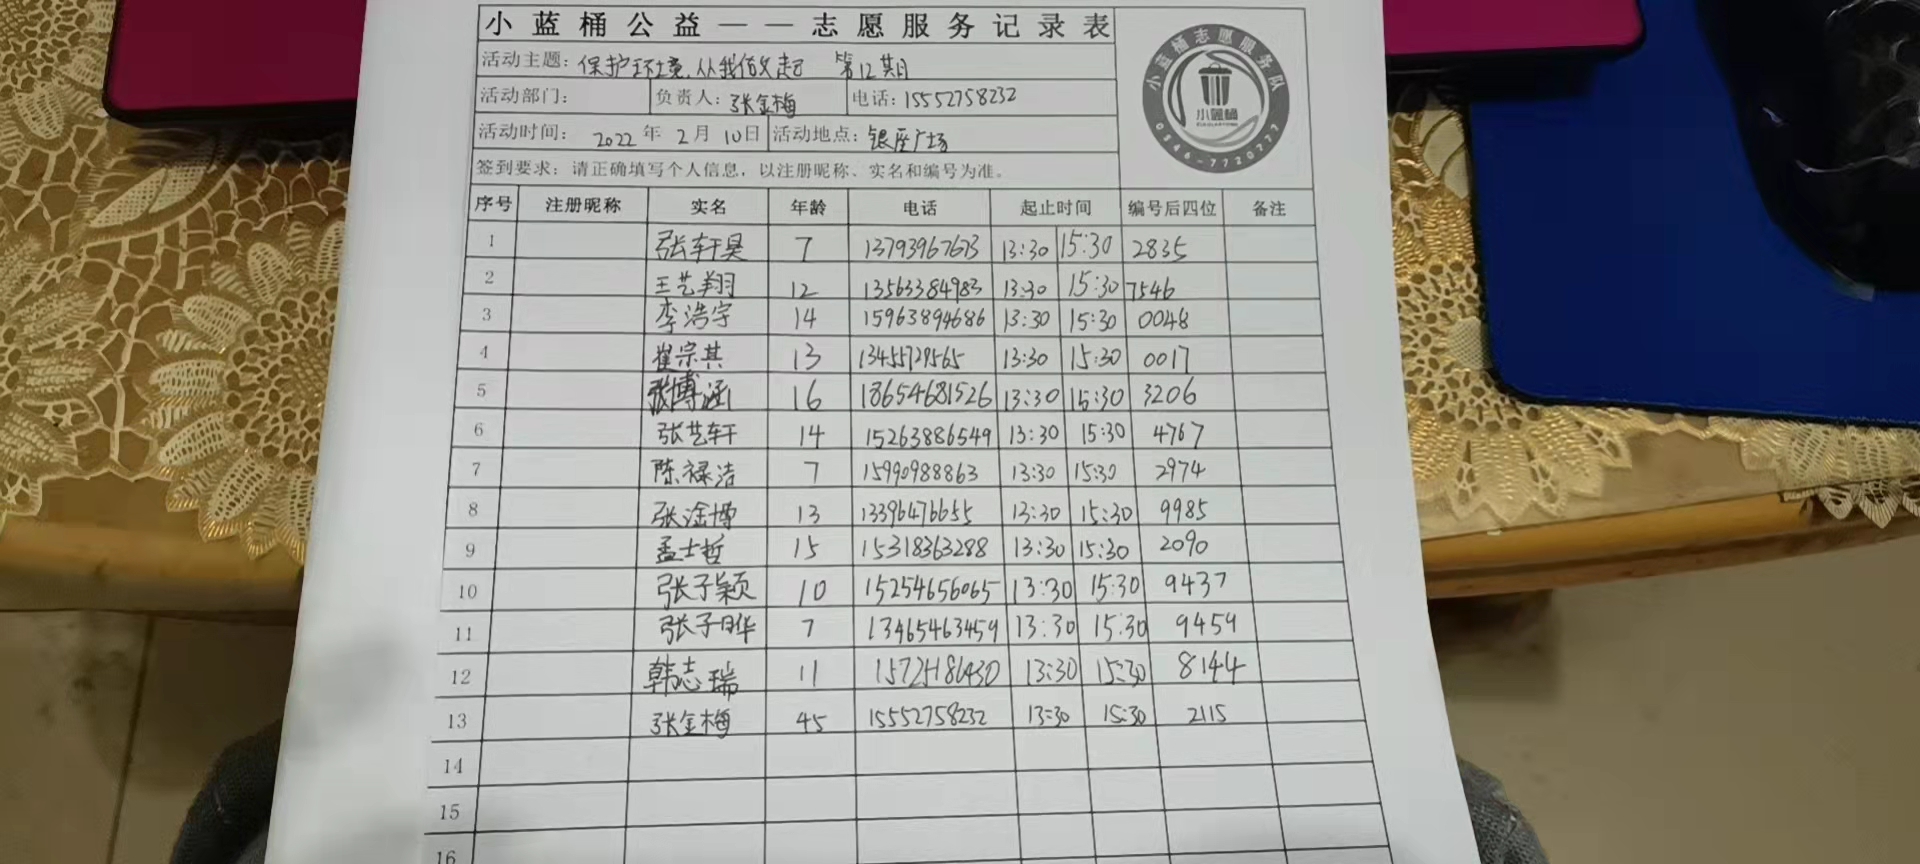 小蓝桶公益——志愿服务记录表
活动主题: 保护环境,从我做起 第12期
活动部门: 负责人: 张金梅 电话: 15552758232
活动时间: 2022年2月10日 活动地点: 银座广场
签到要求: 请正确填写个人信息, 以注册昵称、实名和编号为准。
小蓝桶志愿服务队
小蓝桶
0546-7720777
序号 注册昵称 实名 年龄 电话 起止时间 编号后四位 备注
1 张轩昊 7 13793967673 13:30 15:30 2835
2 王艺翔 12 13563384983 13:30 15:30 7546
3 李浩宇 14 15963894686 13:30 15:30 0048
4 崔宗其 13 13:30 15:30 0017
5 张博涵 16 18654681526 13:30 15:30 3206
6 张艺轩 14 15263886549 13:30 15:30 4767
7 陈禄洁 7 15990988863 13:30 15:30 2974
8 张淦博 13 13396476655 13:30 15:30 9985
9 孟士哲 15 15318363288 13:30 15:30 2090
10 张子颖 10 15254656065 13:30 15:30 9437
11 张子晔 7 13465463459 13:30 15:30 9459
12 韩志瑞 11 13:30 15:30 8144
13 张金梅 45 15552758232 13:30 15:30 2115
14
15
16